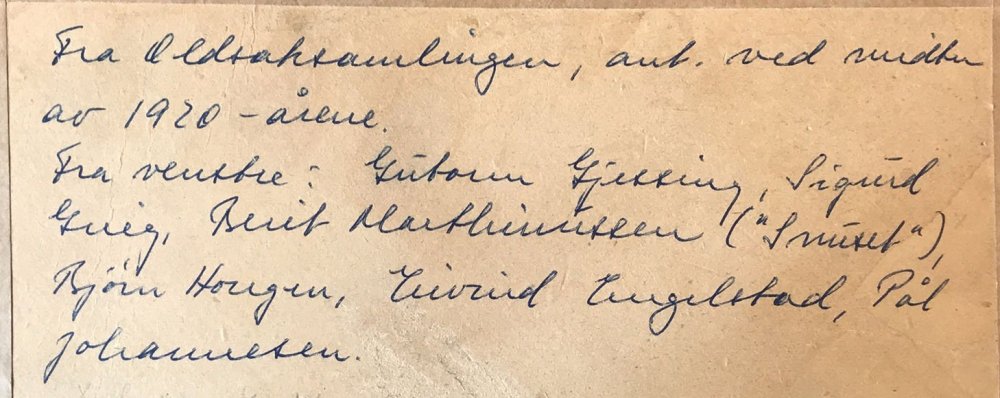 Fra Oldsaksamlingen, ant. ved midten
av 1920-årene.
Fra venstre: Gutorm Gjessing, Sigurd
Grieg, Berit Marthinussen ("Snuset"),
Bjørn Hougen, Eivind Engelstad, Pål
Johannesen.